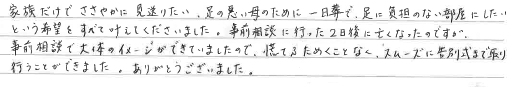 家族だけで ささやかに見送りたい、足の悪い母のために一日葬で、足に負担のない部屋にしたい
という希望をすべて叶えてくださいました。事前相談に行った2日後に亡くなったのですが、
事前相談で大体のイメージができていましたので、慌てるためくことなく、スムーズに告別式まで取り
行うことができました。ありがとうございました。